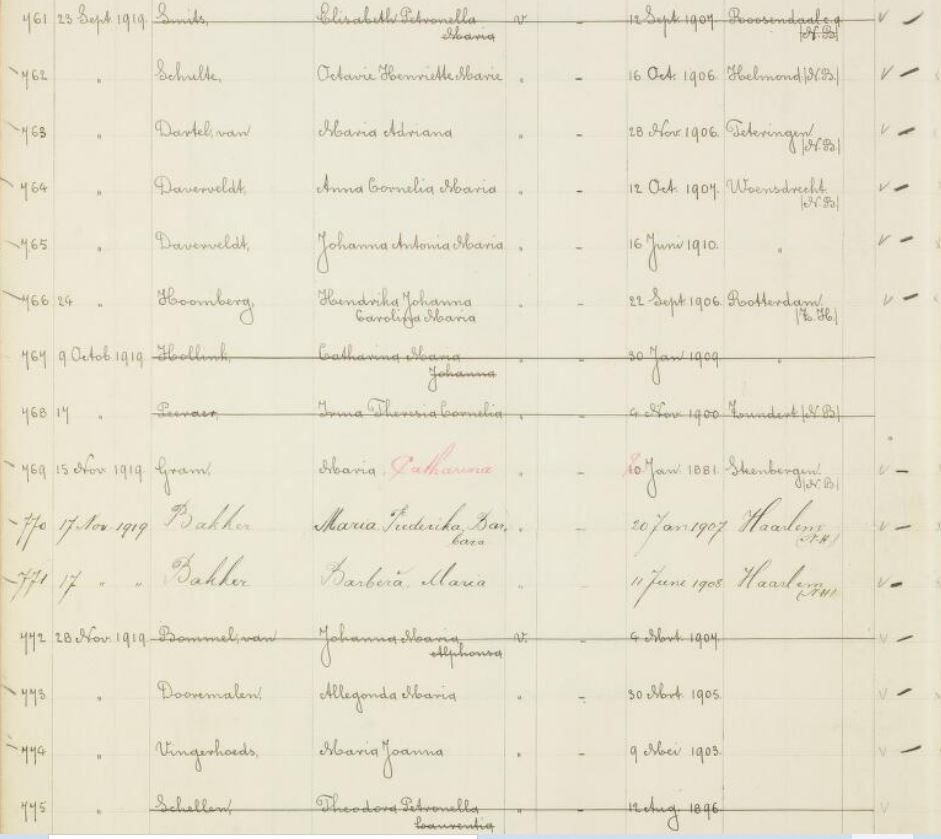 761 23 Sept. 1919. Smits, Elisabeth Petronella v. - 12 Sept. 1907. Roosendaal c.a V -
Maria |N.B|
762 " Schulte, Octavie Henriette Marie " - 16 Oct. 1906. Helmond |N.B| V -
763 " Dartel, van Maria Adriana " - 28 Nov. 1906. Teteringen V -
|N.B|
764 " Daverveldt, Anna Cornelia Maria " - 12 Oct. 1907. Woensdrecht. V -
|N.B|
765 " Daverveldt, Johanna Antonia Maria " - 16 Juni 1910. " V -
766 24 " Hoomberg, Hendrika Johanna " - 22 Sept. 1906. Rotterdam. V -
Carolina Maria |Z.H.|
767 9 Octob. 1919. Hollink, Catharina Maria " - 30 Jan 1909. "
Johanna
768 17 " Peeraer, Irma Theresia Cornelia " - 9 Nov 1900 Zundert |N.B|
769 15 Nov. 1919. Gram. Maria. Catharina " - 10 Jan. 1881. Steenbergen. V -
|N.B|
770 17 Nov. 1919 Bakker Maria Frederika, Bar, " - 20 Jan 1907 Haarlem V -
bara (N.H.)
771 17 " " Bakker Barbera, Maria " - 11 Juni 1908 Haarlem V -
(N.H.)
772 28 Nov. 1919. Bommel, van Johanna Maria v. - Mrt. 1907. V -
Alphonsa
773 " Dooremalen. Allegonda Maria " - 30 Mrt. 1905. V -
774 " Vingerhoeds, Maria Joanna " - 9 Mei 1903. V -
775 " Schellen, Theodora Petronella " - 12 Aug. 1896. V
Laurentia